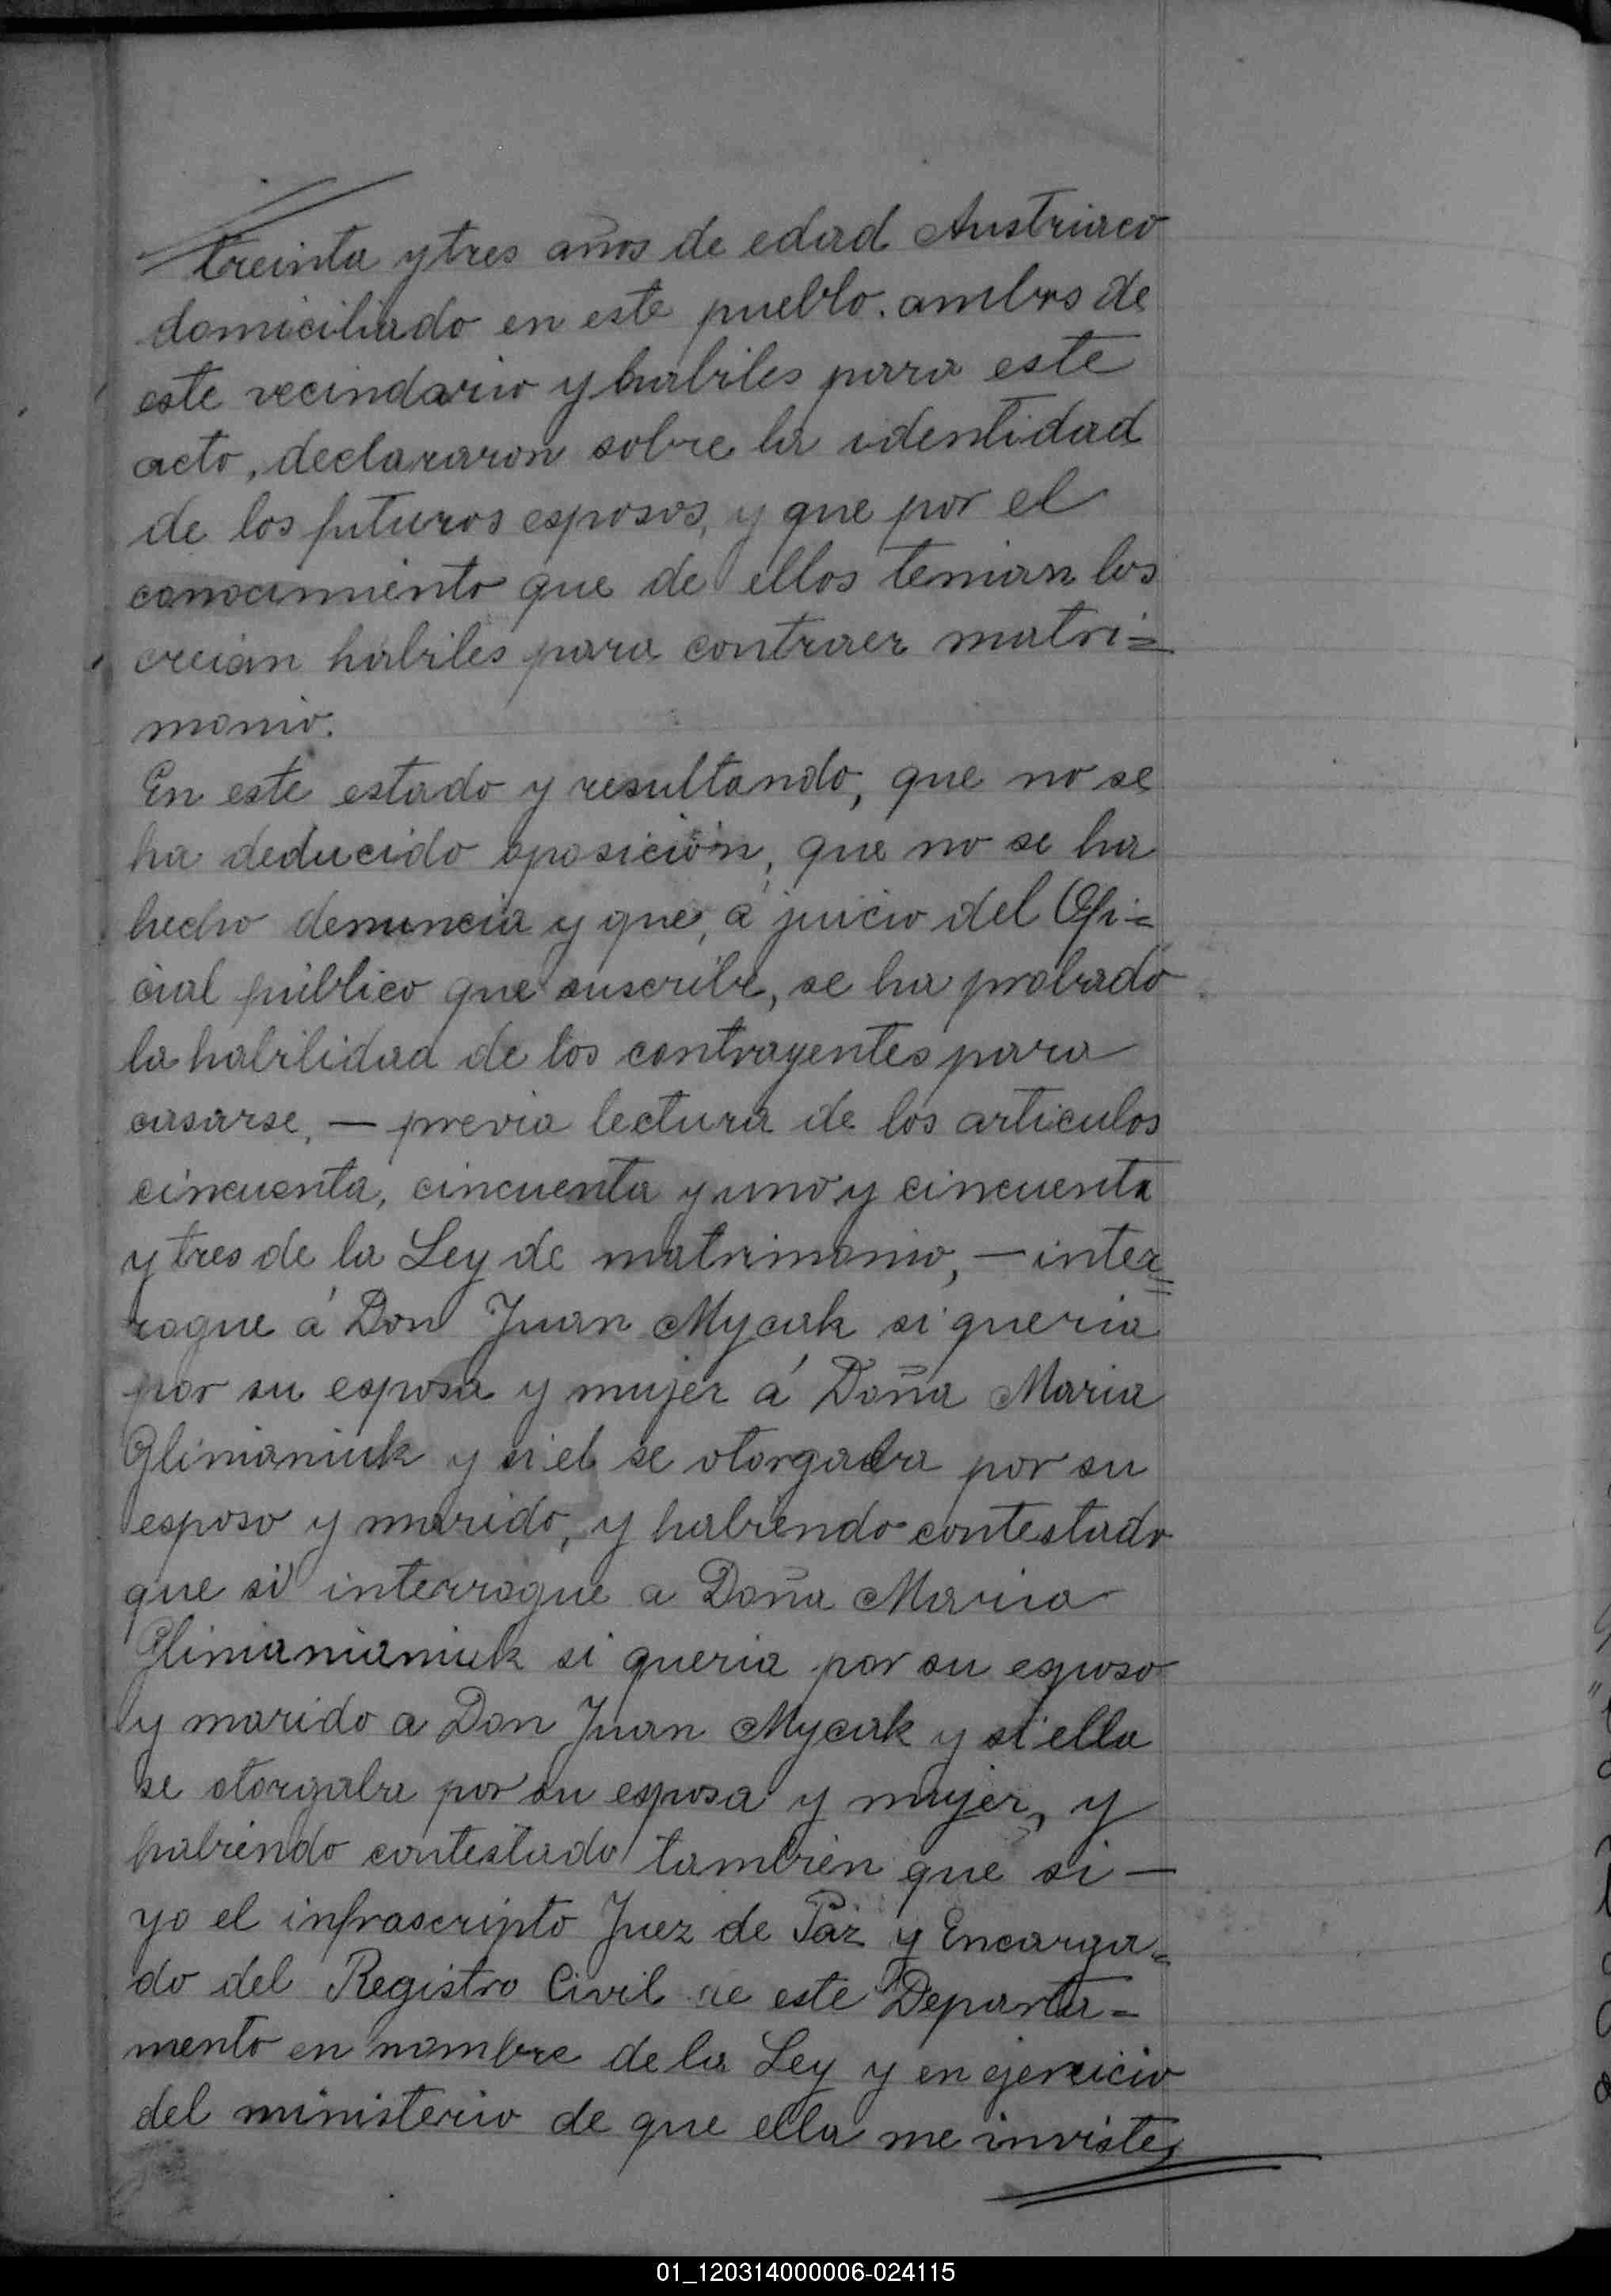 treinta y tres años de edad Austriaco
domiciliado en este pueblo. ambos de
este vecindario y habiles para este
acto, declararon sobre la identidad
de los futuros esposos, y que por el
conocimiento que de ellos tenian los
creian hábiles para contraer matri=
monio.
En este estado y resultando, que no se
ha deducido oposición, que no se ha
hecho denuncia y que, á juicio del Ofi=
cial público que suscribe, se ha probado
la habilidad de los contrayentes para
casarse, — previa lectura de los articulos
cincuenta, cincuenta y uno y cincuenta
y tres de la Ley de matrimonio, — inter=
rogue á Don Juan Mycak si queria
por su esposa y mujer á Doña Maria
Glinianiuk y si el se otorgaba por su
esposo y marido, y habiendo contestado
que si interrogue a Doña Maria
Glinianianiuk si queria por su esposo
y marido a Don Juan Mycak y si ella
se otorgaba por su esposa y mujer, y
habiendo contestado también que si —
yo el infrascripto Juez de Paz y Encarga=
do del Registro Civil de este Departa=
mento en nombre de la Ley y en ejercicio
del ministerio de que ella me inviste,
01_120314000006-024115